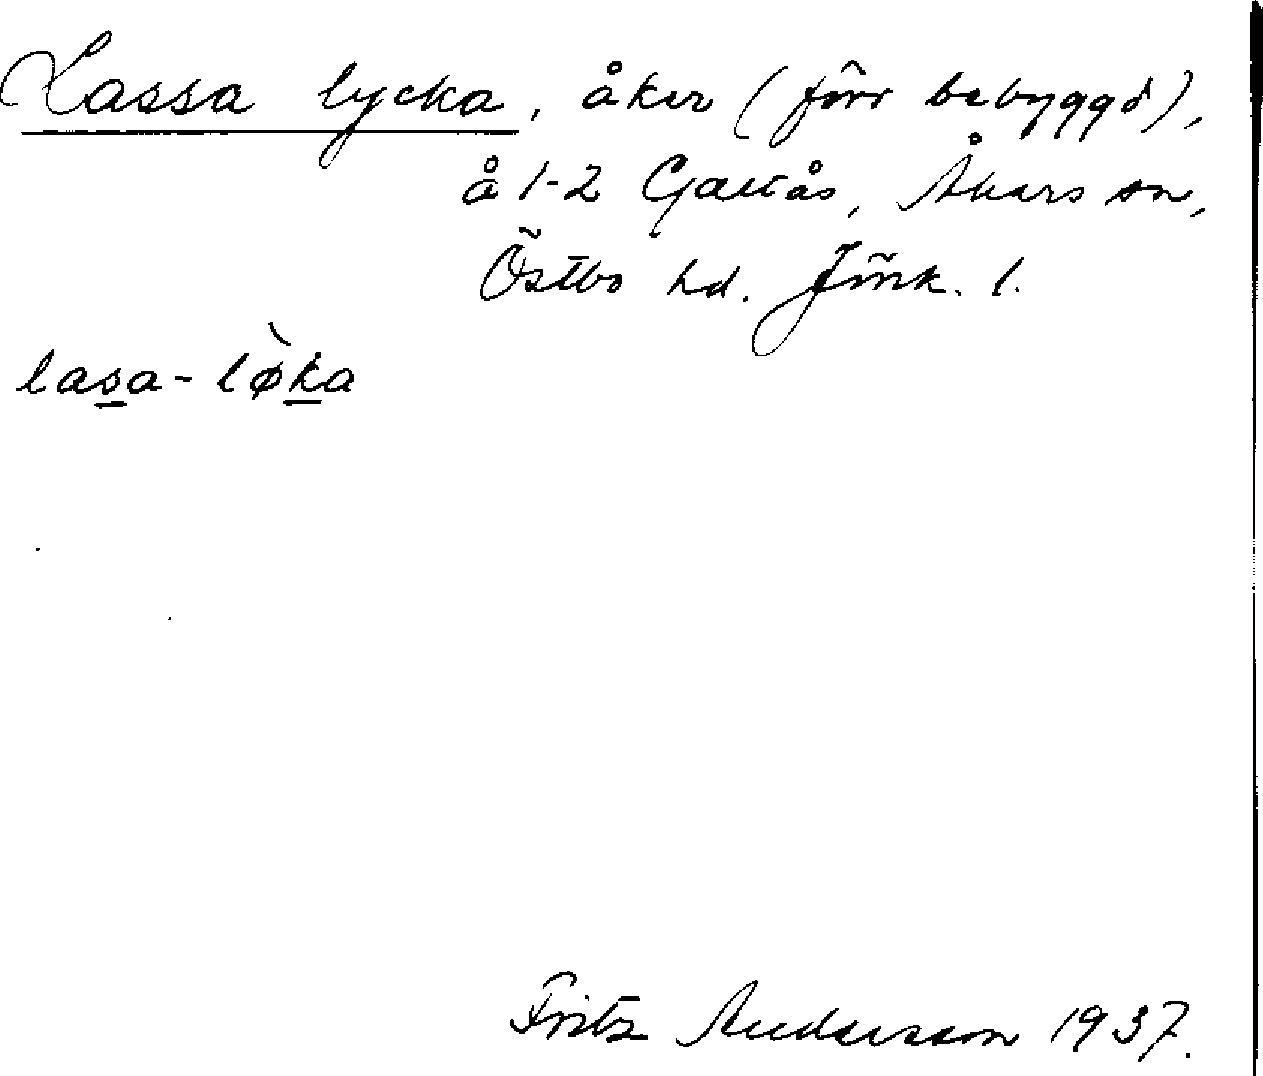 Lassa lycka, åker (förr bebyggd),
å 1-2 Galtås, Åkers sn,
Östbo hd. Jönk. l.
lasa-lø̀ka
Fritz Andersson 1937.